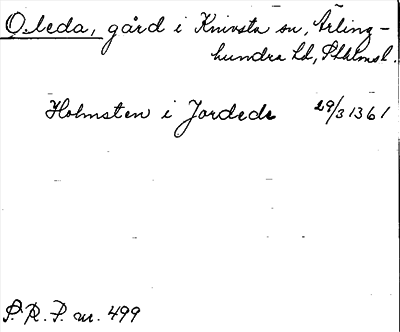 Oleda, gård i Knivsta sn, Ärling-
hundra hd, Sthlms l.
Holmsten i Jordede 29/3 1361
S. R. P. nr. 499